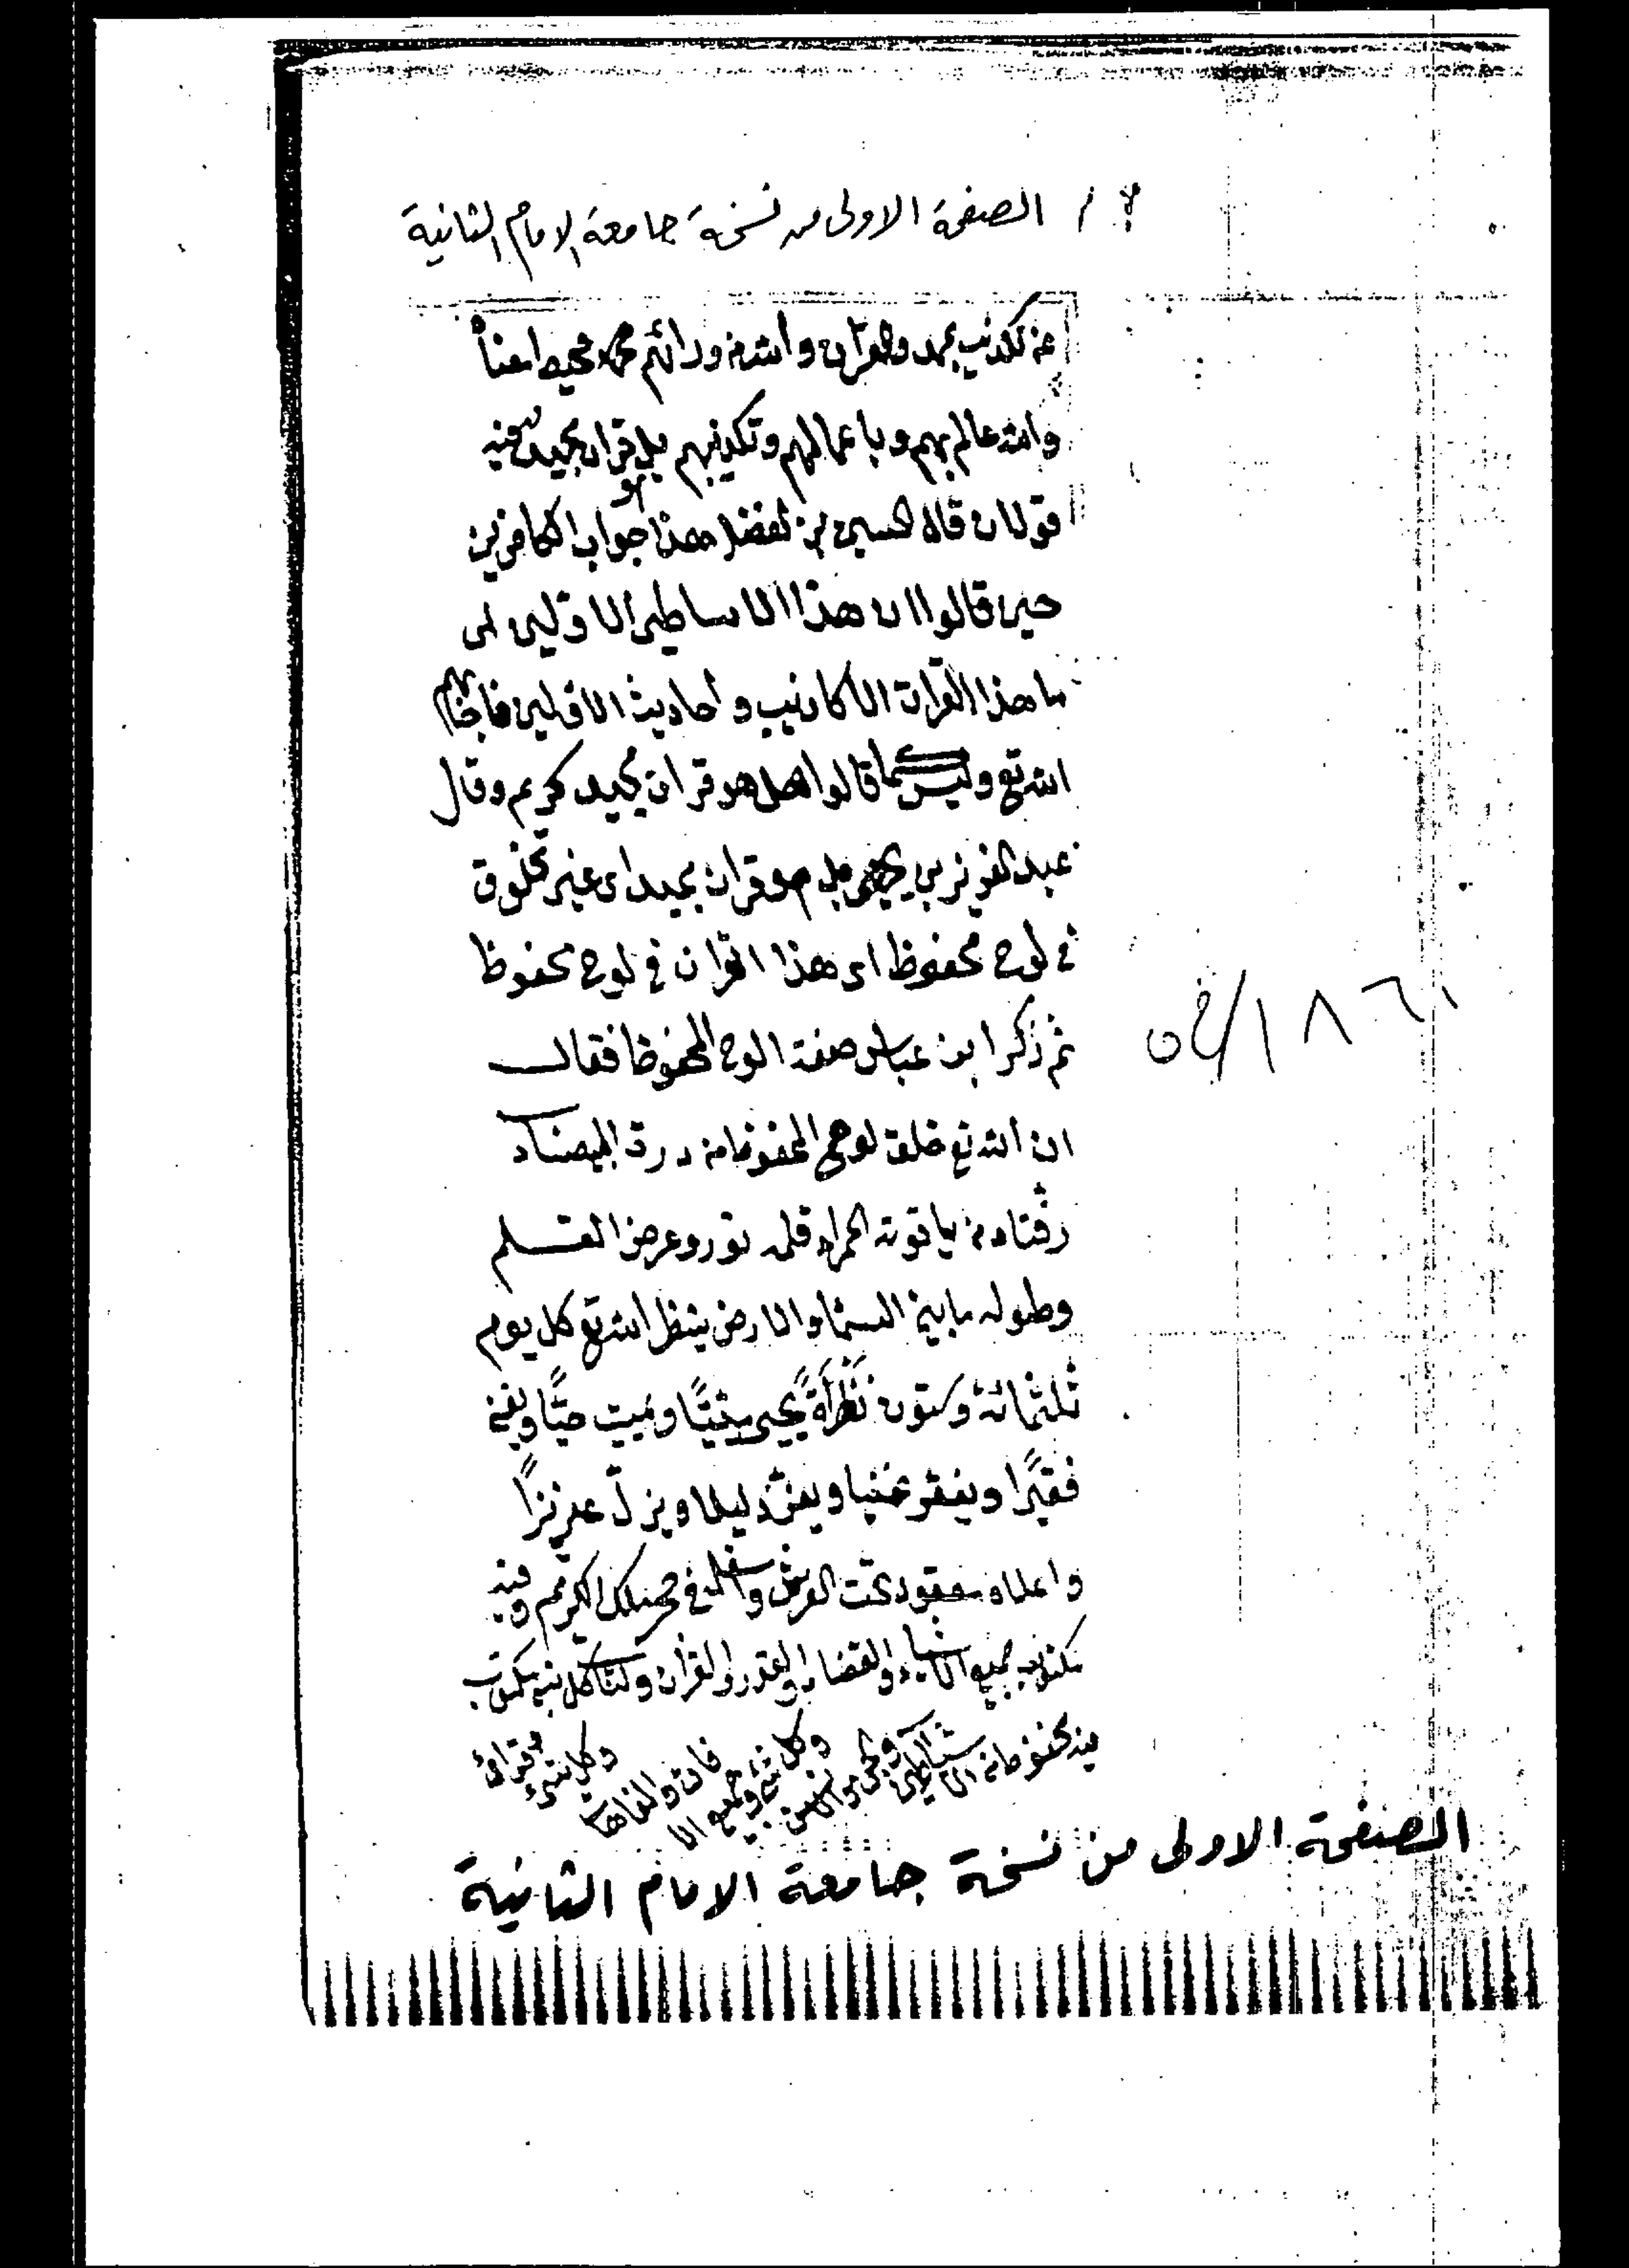 الصفحة الاولى من نسخة جامعة الامام الثانية
والقران والله من ورائهم محيط
والله عالم بهم وباعمالهم وتكذيبهم بل هو قران مجيد فيه
قولان قال الحسين بن الفضل هذا جواب الكافرين
حين قالوا ان هذا الا اساطير الاولين اى
ما هذا القران الا كاذيب واحاديث الاولين فاجابهم
الله تع وليس كما قالوا هل هو قران مجيد كريم وقال
عبد العزيز بن يحيى بل هو قران مجيد اى غير مخلوق
فى لوح محفوظ اى هذا القران فى لوح محفوظ
ثم ذكر ابن عباس صفة الوح المحفوظ فقال
ان الله تع خلق لوح المحفوظ من درة البيضاء
دفتاه من ياقوته الحمراء قلمه نور وعرض القلم
وطوله ما بين السماء والارض ينظر الله تع كل يوم
ثلثمائة وستون نظرة يحيى ميتا ويميت حيا ويغنى
فقيرا ويفقر غنيا ويعز ذليلا ويزل عزيزا
واعلاه معقود تحت العرش واسفله فى الكريم وفيه
مكتوب جميع الاشياء والقضاء والقدر والقران مكتوب
وكل شئ وجميع
وكل شئ
١٨٦١/خ ٥
الصفحة الاولى من نسخة جامعة الامام الثانية